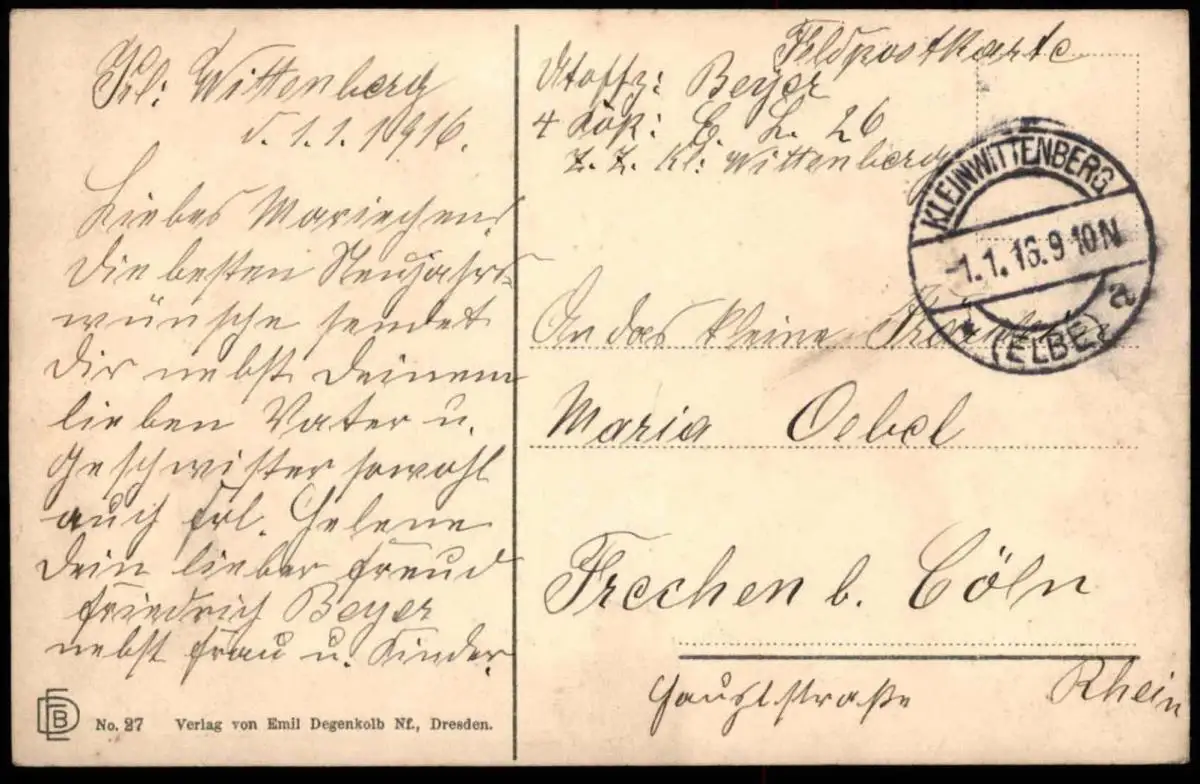 Kl: Wittenberg
d. 1.1.1916.
Liebes Mariechen!
Die besten Neujahrs-
wünsche sendet
Dir nebst Deinem
lieben Vater u.
Geschwister sowohl
auch Frl. Helene
Dein lieber Freud
Friedrich Beyer
nebst Frau u. Kinder.
DEB No. 27 Verlag von Emil Degenkolb Nf., Dresden.
Feldpostkarte
Utoffz: Beyer
4 E. L. 26
z. Z. Kl: Wittenberg
KLEINWITTENBERG
-1.1.16.9-10N
* (ELBE) a
An das kleine
Maria Oebel
Frechen b. Cöln
Rhein
Hauptstraße